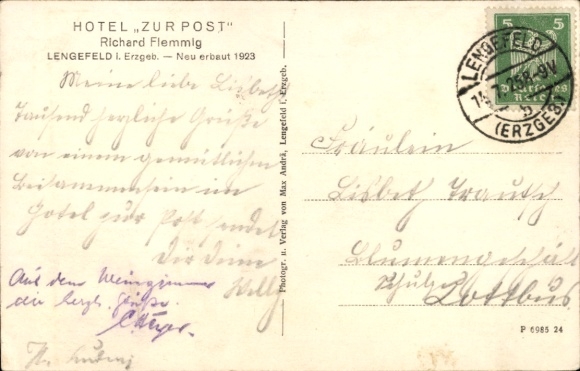 HOTEL „ZUR POST"
Richard Flemmig
LENGEFELD i. Erzgeb. — Neu erbaut 1923
Meine liebe Lisbeth
Tausend herzliche Grüße
von einem gemütlichen
Beisammensein im
Hotel zur Post sendet
Dir Deine
Willy
Aus dem Weinzimmer
die herzl. Grüße.
Photogr. u. Verlag von Max André, Lengefeld i. Erzgeb.
5 5
Deutsches
Reich
LENGEFELD
(ERZGEB.)
Fräulein
Lisbet Trautsch
Blumengeschäft
Schulz
Cottbus
P 6985 24